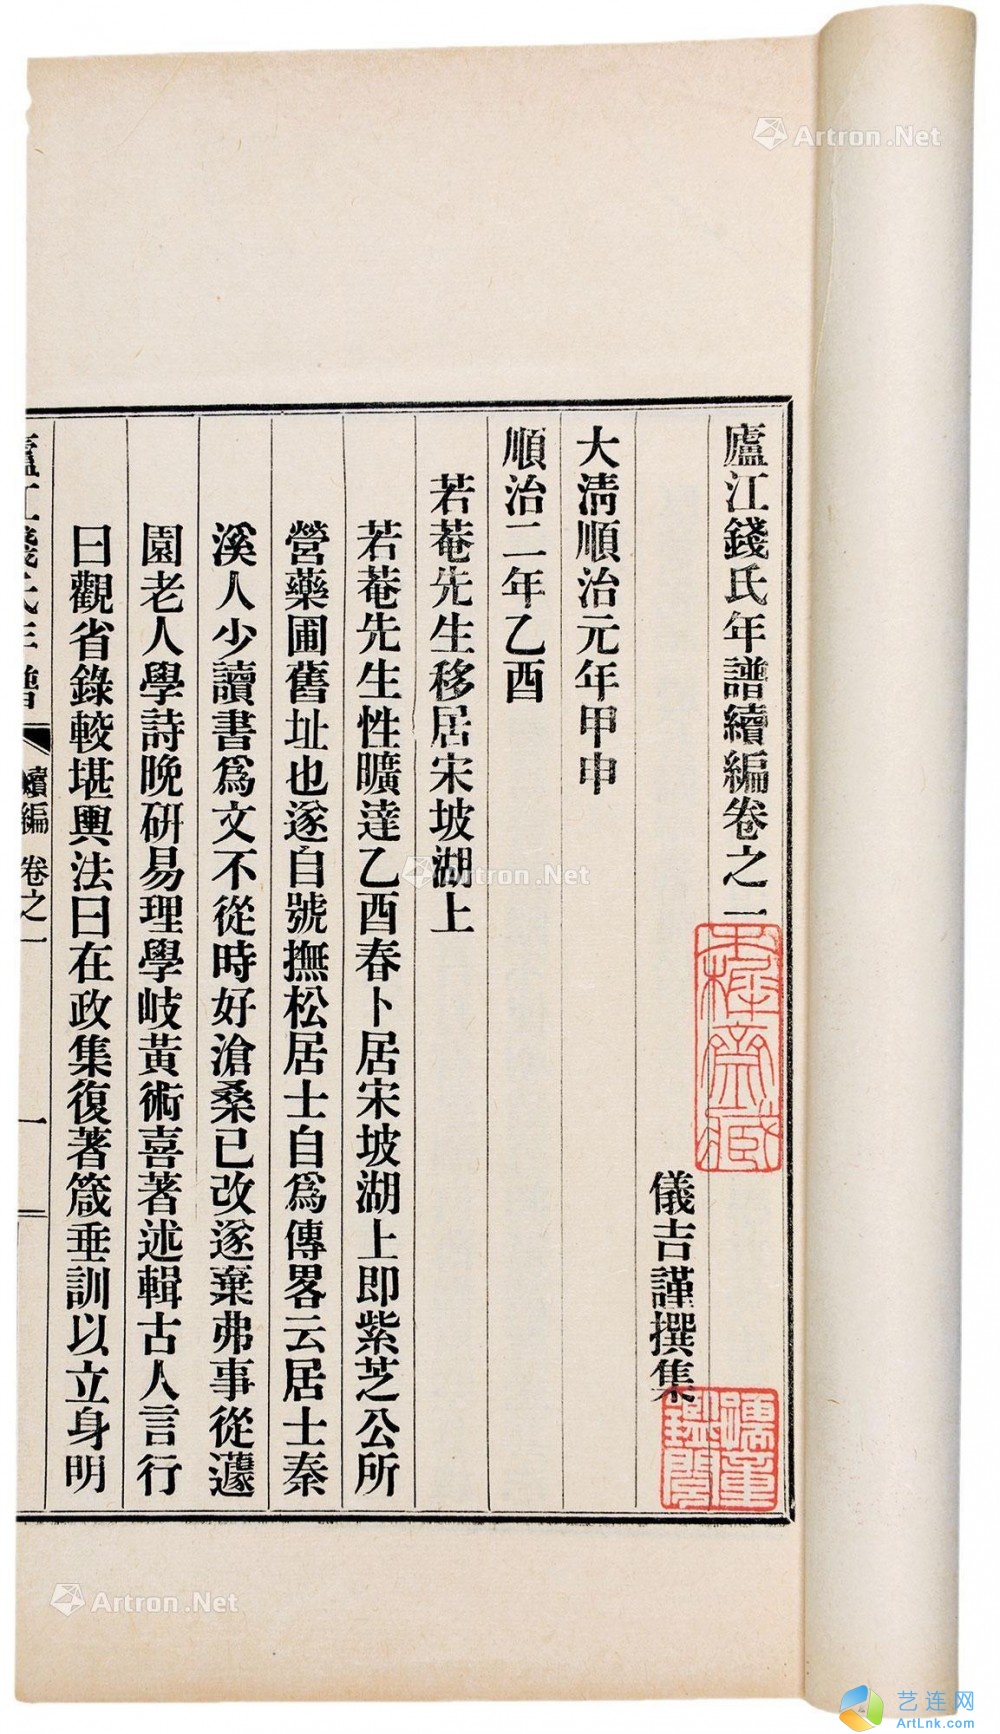 廬江錢氏年譜續編卷之一
儀吉謹撰集
大淸順治元年甲申
順治二年乙酉
若菴先生移居宋坡湖上
若菴先生性曠達乙酉春卜居宋坡湖上卽紫芝公所
營藥圃舊址也遂自號撫松居士自爲傳畧云居士秦
溪人少讀書爲文不從時好滄桑已改遂棄弗事從蘧
園老人學詩晚硏易理學岐黃術喜著述輯古人言行
曰觀省錄較堪輿法曰在政集復著箴垂訓以立身明
廬江錢氏年譜 續編 卷之一 一
Artron.Net
Artron.Net
Artron.Net
艺连网
ArtLnk.com